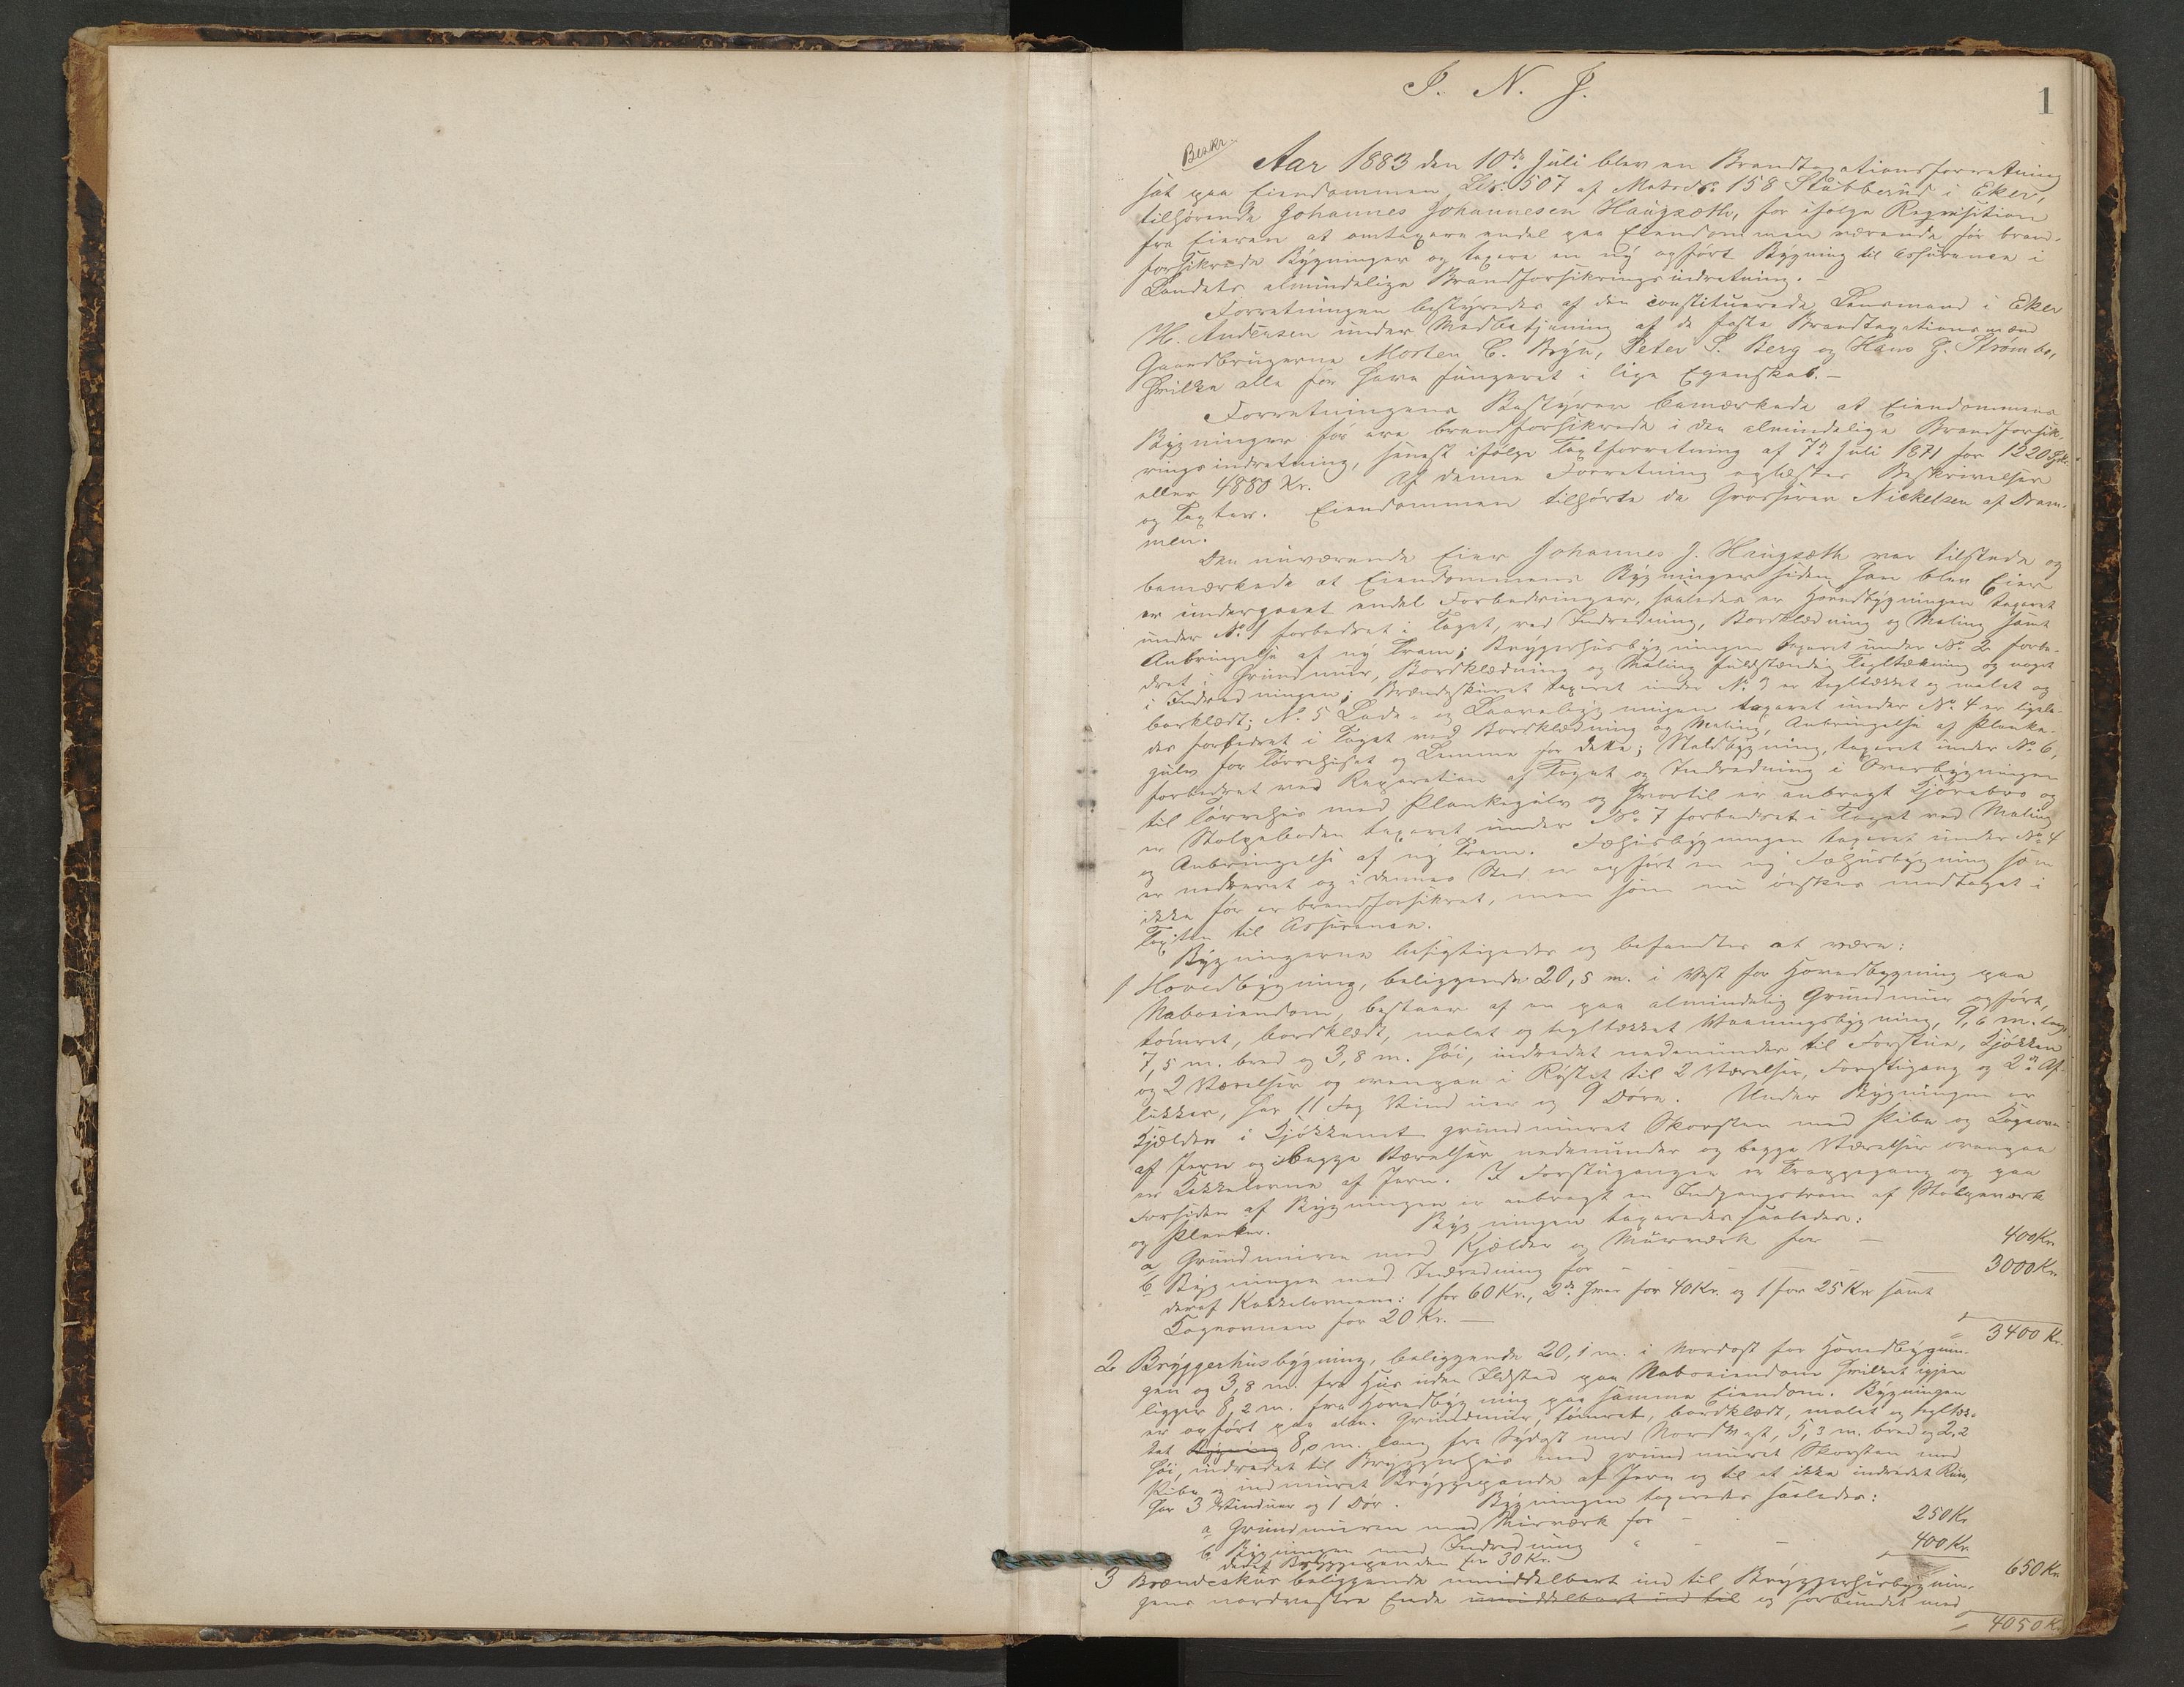 I. N. J.
1
Beskr.
Aar 1883 den 10de Juli blev en Brandtaxationsforretning
sat paa Eiendommen Løb: 507 af Matr. No. 158 Stubberud i Eker,
tilhørende Johannes Johannesen Haugsæth, for ifølge Reqvisition
fra Eieren at omtaxere endel paa Eiendommen værende før brand-
forsikrede Bygninger og taxere en ny opført Bygning til Assurance i
Landets almindelige Brandforsikringsindretning. –
Forretningen bestyredes af den constituerede Lensmand i Eker
H. Andersen under Medbetjening af de faste Brandtaxationsmænd
Gaardbrugerne Morten C. Bryn, Peter S. Berg og Hans G. Strømbo,
hvilke alle før have fungeret i lige Egenskab. –
Forretningens Bestyrer bemærkede at Eiendommens
Bygninger før ere brandforsikrede i den almindelige Brandforsik-
ringsindretning, senest ifølge Taxtforretning af 7de Juli 1871 for 1220 Spd.
eller 4880 Kr. Af denne Forretning oplæstes Beskrivelser
og Taxter. Eiendommen tilhørte da Grosserer Nickelsen af Dram-
men.
Den nuværende Eier Johannes J. Haugsæth var tilstede og
bemærkede at Eiendommens Bygninger siden han blev Eier
er undergaaet endel Forbedringer, saaledes er Hovedbygningen taxeret
under No. 1 forbedret i Taget, ved Indredning, Bordklædning og Maling samt
Anbringelse af ny Tram; Bryggerhusbygningen taxeret under No. 2 forbe-
dret i Grundmur, Bordklædning og Maling fuldstændig Tegltækning og noget
i Indredningen; Brændeskuret taxeret under No. 3 er tegltækket og malet og
borklædt; No. 5 Lade- og Laavebygningen taxeret under No. 4 er ligele-
des forbedret i Taget med Bordklædning og Maling, Anbringelse af Planke-
gulv for Tørrehuset og Lemme for dette; Staldbygning, taxeret under No. 6,
forbedret med Reparation af Taget og Indredning i Overbygningen
til Tørrehus med Plankegulv og hvortil er anbragt Kjørebro og
er Stolpeboden taxeret under No. 7 forbedret i Taget ved Maling
og Anbringelse af ny Tram. Fæhusbygningen taxeret under No. 4
er nedrevet og i dennes Sted er opført en ny Fæhusbygning som
ikke før er brandforsikret, men som nu ønskes medtaget i
Taxten til Assurance.
Bygningerne besigtigedes og befandtes at være:
1 Hovedbygning, beliggende 20,5 m. i Vest for Hovedbygning paa
Naboeiendom, bestaar af en paa almindelig Grundmur opført,
tømret, bordklædt, malet og tegltækket Vaaningsbygning, 9,6 m. lang,
7,5 m. bred og 3,8 m. høi, indredet nedenunder til Forstue, Kjøkken
og 2 Værelser og ovenpaa i Røstet til 2 Værelser, Forstugang og 2de Af-
lukker, har 11 Fag Vinduer og 9 Døre. Under Bygningen er
Kjælder i Kjøkkenet grundmuret Skorsten med Pibe og Kogeovn
af Jern og i begge Værelser nedenunder og begge Værelser ovenpaa
er Kakkelovne af Jern. I Forstugangen er Trappegang og paa
Forsiden af Bygningen er anbragt en Indgangstram af Stolpeværk
og Planker. Bygningen taxeredes saaledes:
a Grundmuren med Kjælder og Murværk for — 400 Kr.
b Bygningen med Indredning for — — — — 3000 Kr.
deraf Kakkelovnene: 1 for 60 Kr., 2de hver for 40 Kr. og 1 for 25 Kr. samt
Kogeovnen for 20 Kr. —
3400 Kr.
2 Bryggerhusbygning, beliggende 20,1 m. i Nordost for Hovedbygnin-
gen og 3,8 m. fra Hus uden Ildsted paa Naboeiendom hvilket igjen
ligger 8,2 m. fra Hovedbygning paa samme Eiendom. Bygningen
er opført paa alm. Grundmur, tømret, bordklædt, malet og tegltæk-
ket Bygning 8,0 m. lang fra Sydost mod Nordvest, 5,3 m. bred og 2,2
høi, indredet til Bryggerhus med grundmuret Skorsten med
Pibe og indmuret Bryggepande af Jern og til et ikke indredet Rum,
har 3 Vinduer og 1 Dør. Bygningen taxeredes saaledes:
a Grundmuren med Murværk for - 250 Kr.
b Bygningen med Indredning " - - 400 Kr.
deraf Bryggepanden for 30 Kr.
650 Kr.
3 Brændeskur beliggende umiddelbart ind til Bryggerhusbygnin-
gens nordvestre Ende umiddelbart ind til og forbundet med
4050 Kr.